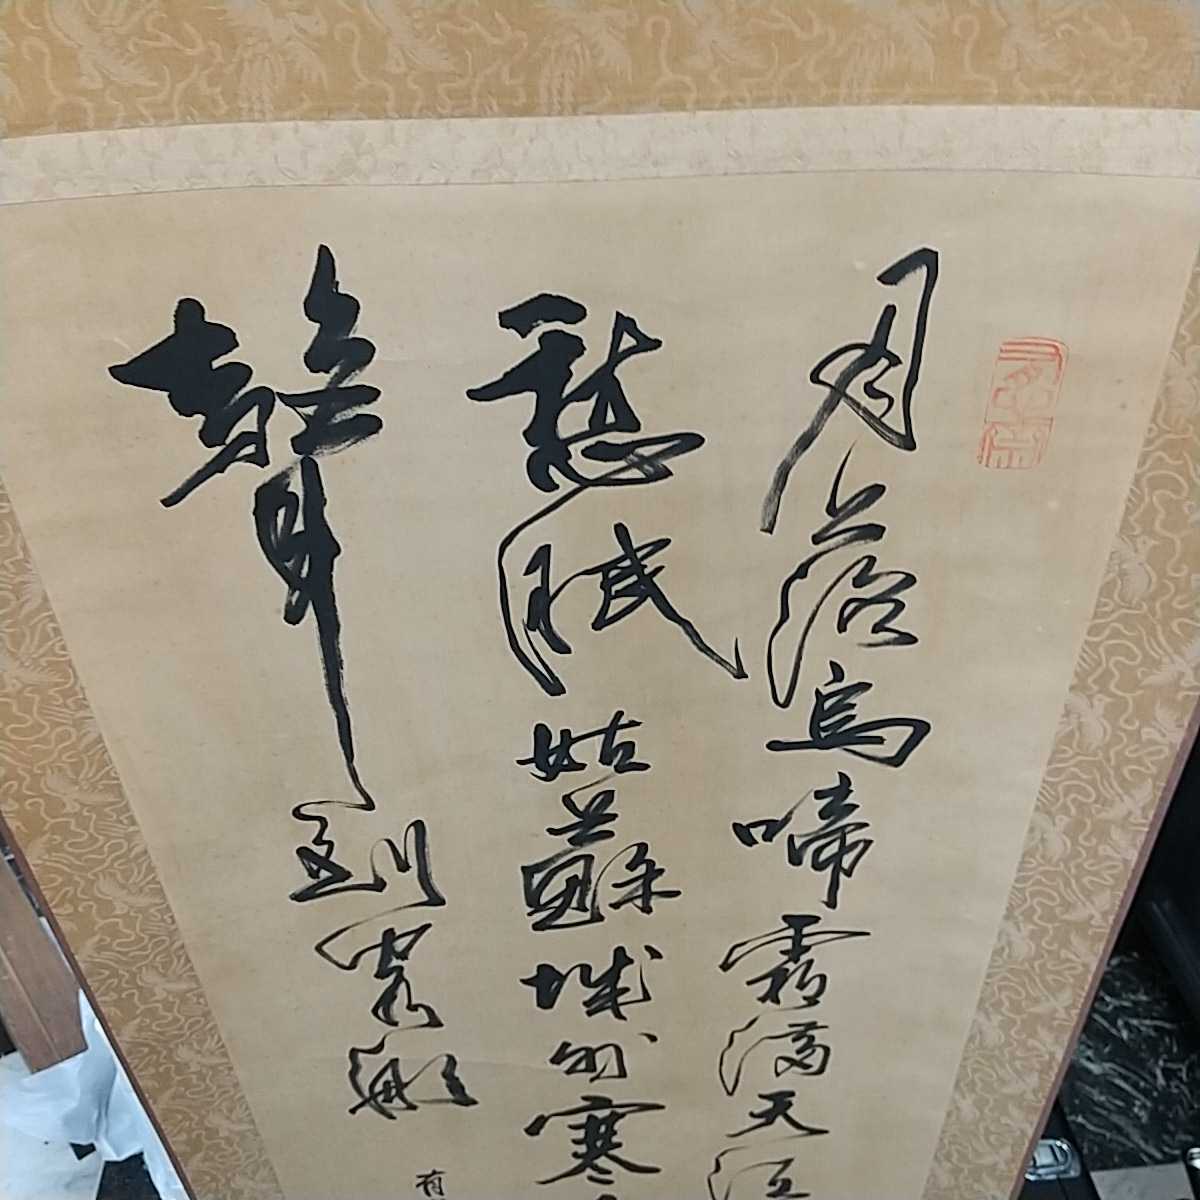 月落烏啼霜滿天江
愁眠姑蘇城外寒
聲到客船
有